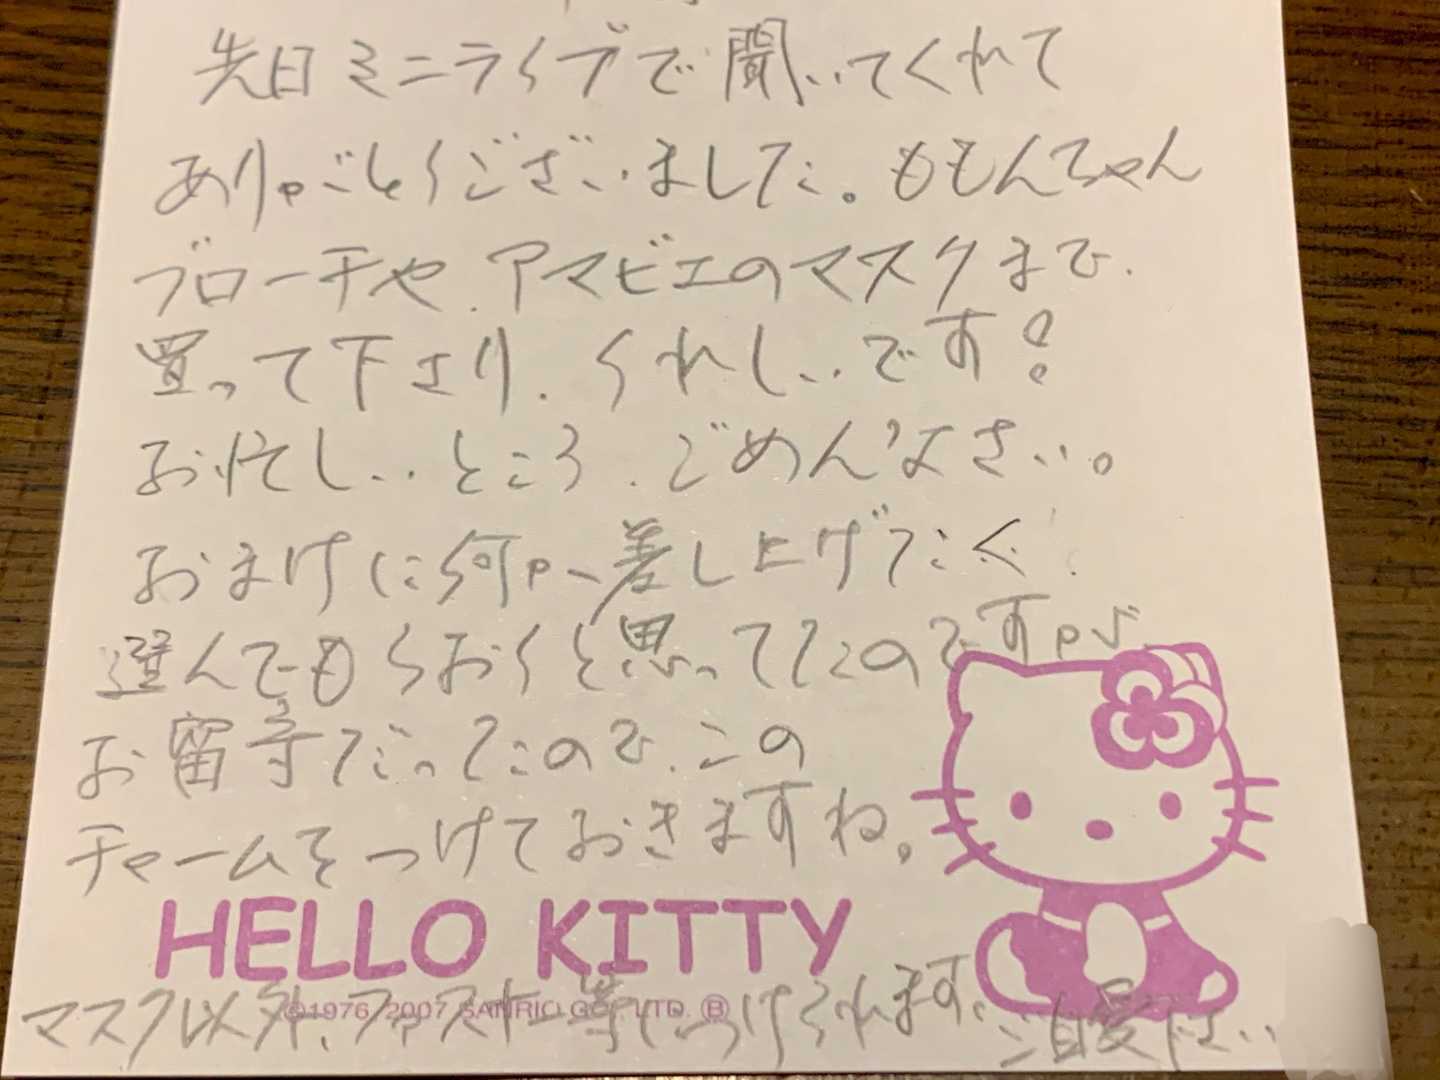 先日ミニライブで聞いてくれて
ありがとうございました。ももんちゃん
ブローチや、アマビエのマスクまで、
買って下さり、うれしいです!
お忙しいところ、ごめんなさい。
おまけに何か差し上げたく
選んでもらおうと思ってたのですが
お留守だったので、この
チャームをつけておきますね。
HELLO KITTY
©1976, 2007 SANRIO CO., LTD. Ⓑ
マスク以外、ファスナー等につけられます。ご自愛下さい